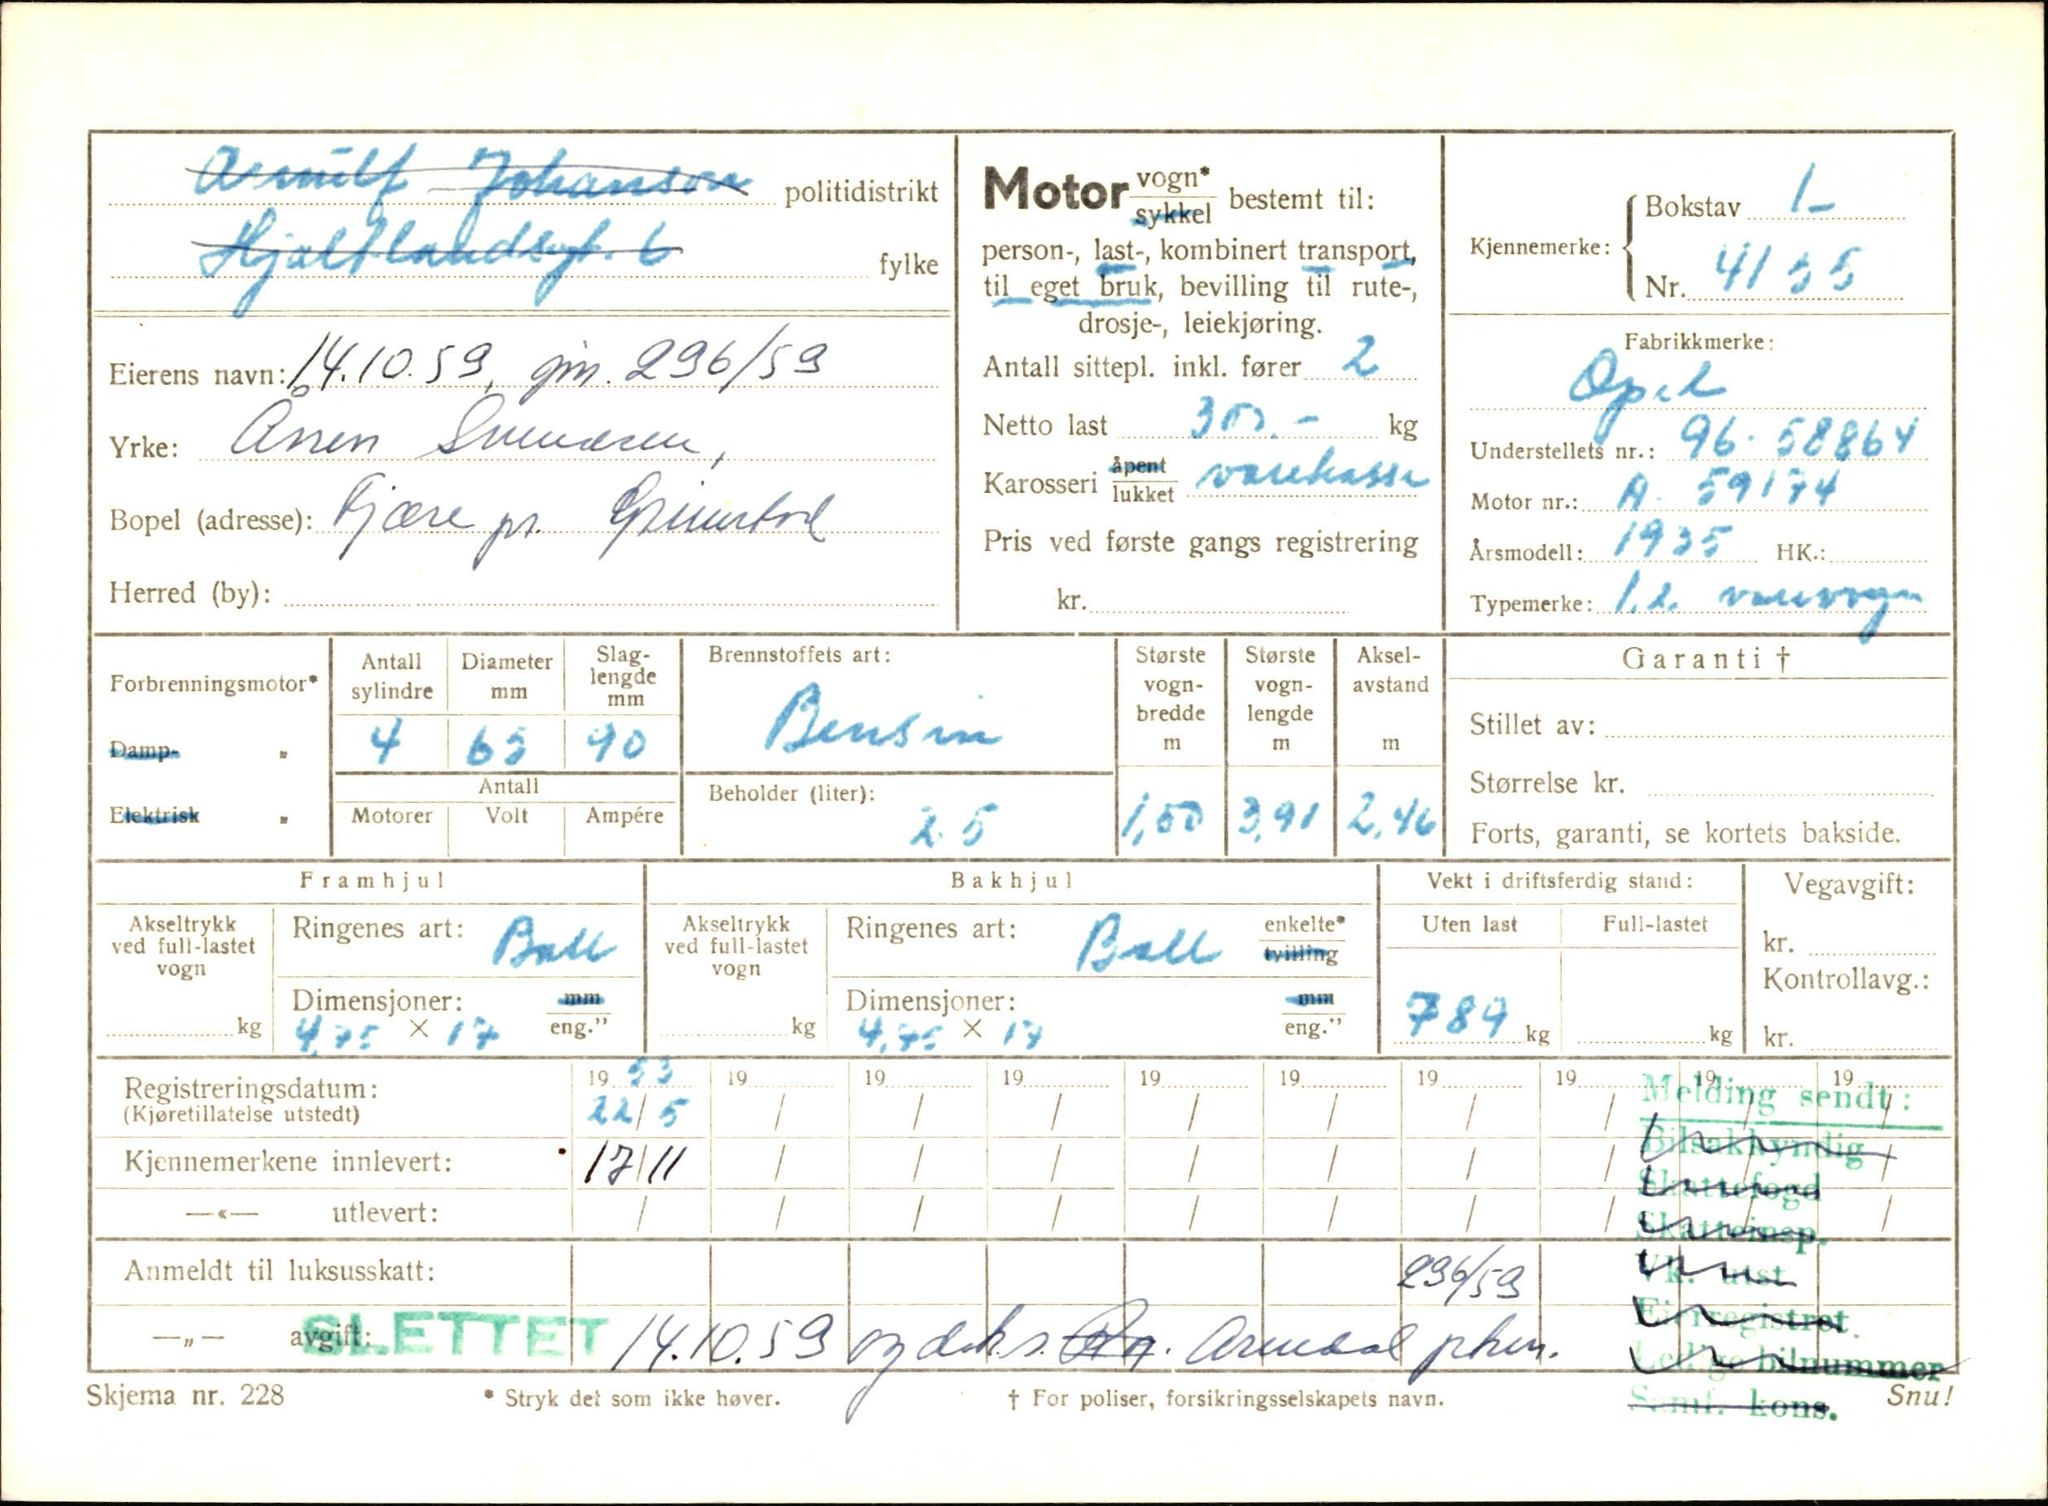 Arnulf Johanson politidistrikt
Hjaltlandsgt. 6 fylke
Eierens navn: 14.10.59, gm. 296/59
Yrke: Ånen Svendsen,
Bopel (adresse): Fjære pr. Grimstad
Herred (by):
Motor vogn* sykkel bestemt til:
person-, last-, kombinert transport,
til eget bruk, bevilling til rute-,
drosje-, leiekjøring.
Antall sittepl. inkl. fører 2
Netto last 300.- kg
Karosseri åpent lukket varekasse
Pris ved første gangs registrering
kr.
Kjennemerke: Bokstav L
Nr. 4155
Fabrikkmerke:
Opel
Understellets nr.: 96-58864
Motor nr.: A. 59174
Årsmodell: 1935 HK.:
Typemerke: 1.2. varevogn
Forbrenningsmotor*
Damp- "
Elektrisk "
Antall sylindre Diameter mm Slag-lengde mm
4 65 90
Antall
Motorer Volt Ampére
Brennstoffets art:
Bensin
Beholder (liter):
25
Største vogn-bredde m Største vogn-lengde m Aksel-avstand m
1,50 3,91 2,46
Garanti †
Stillet av:
Størrelse kr.
Forts, garanti, se kortets bakside.
Framhjul
Akseltrykk ved full-lastet vogn
kg
Ringenes art: Ball
Dimensjoner: mm
4,75 × 17 eng."
Bakhjul
Akseltrykk ved full-lastet vogn
kg
Ringenes art: Ball enkelte* tvilling
Dimensjoner: mm
4,75 × 17 eng."
Vekt i driftsferdig stand:
Uten last Full-lastet
784 kg kg
Vegavgift:
kr.
Kontrollavg.:
kr.
19 53 19 19 19 19 19 19 19 19 19
Registreringsdatum:
(Kjøretillatelse utstedt) 22/5 / / / / / / / / /
Kjennemerkene innlevert: 17/11 / / / / / / / / /
—«— utlevert: / / / / / / / / / /
Anmeldt til luksusskatt: 296/59
—„— avgift: SLETTET 14.10.59 Arendal pkm.
Melding sendt:
Bilsakkyndig
Skattefogd
Skatteinsp.
Vk. utst
Eierregistret
Ledige bilnummer
Samf. kons.
Skjema nr. 228 * Stryk det som ikke høver. † For poliser, forsikringsselskapets navn. Snu!